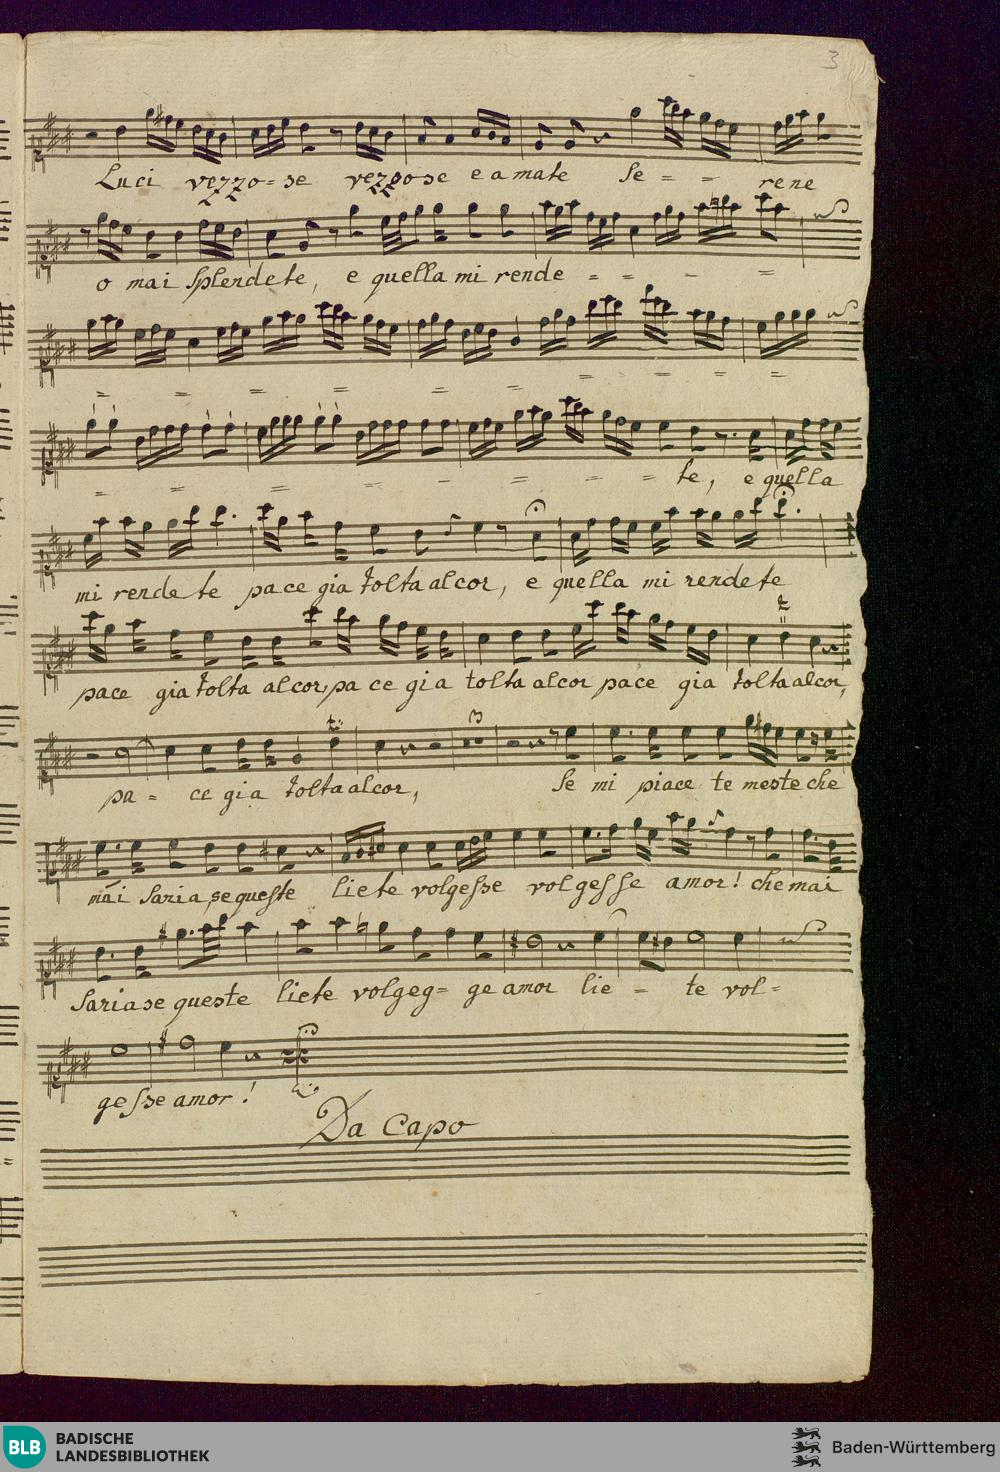 3
Luci vezzo=se vezzose e amate se = - rene
o mai splendete, e quella mi rende = = - =
= = = = = = = = = =
= = = = = - - = te, e quella
mi rendete pace gia tolta al cor, e quella mi rendete
pace gia tolta al cor, pace gia tolta al cor pace gia tolta al cor,
3
pa = ce gia tolta al cor, se mi piacete meste che
mai saria, se queste liete volgesse volgesse amor! che mai
saria se queste liete volgeg= ge amor lie - te vol=
gesse amor!
Da Capo
BLB BADISCHE
LANDESBIBLIOTHEK
Baden-Württemberg